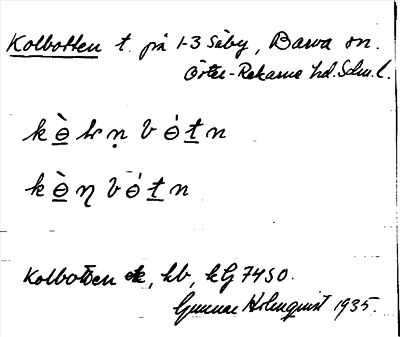 Kolbotten t. på 1-3 Säby, Barva sn.
Öster-Rekarne hd. Södm. l.
k ò̲ lr ṇ b ó t̲ n
k ò̲ ŋ b ó t̲ n
Kolbotten ek, kb, kG 7450.
Gunnar Holmquist 1935.